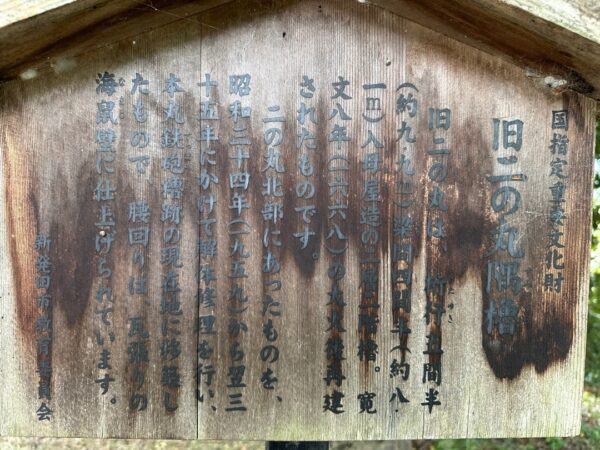 国指定重要文化財
旧二の丸隅櫓
旧二の丸は、桁行五間半
(約九・九m)梁間四間半(約八・
一m)入母屋造の二層二階櫓。寛
文八年(一六六八)の大火後再建
されたものです。
二の丸北部にあったものを、
昭和三十四年(一九五九)から翌三
十五年にかけて解体修理を行い、
本丸鉄砲櫓跡の現在地に移築し
たもので、腰回りは、瓦張りの
海鼠壁に仕上げられています。
新発田市教育委員会